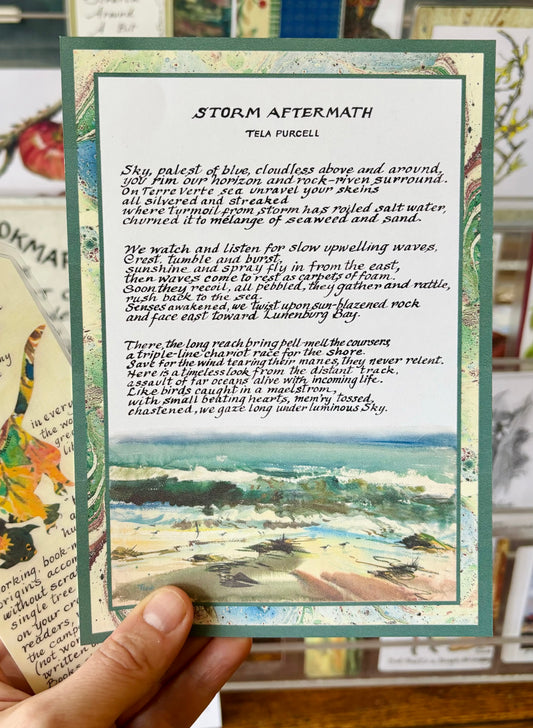 Around
A Bit
STORM AFTERMATH
TELA PURCELL
Sky, palest of blue, cloudless above and around,
you rim our horizon and rock-riven surround.
On Terre Verte sea unravel your skeins
all silvered and streaked
where Turmoil from storm has roiled salt water,
churned it to mélange of seaweed and sand.
We watch and listen for slow upwelling waves,
Crest, tumble and burst,
sunshine and spray fly in from the east,
then waves come to rest as carpets of foam.
Soon they recoil, all pebbled, they gather and rattle,
rush back to the sea.
Senses awakened, we twist upon sun-blazened rock
and face east toward Lunenburg Bay.
There, the long reach bring pell-mell the coursers,
a triple-line chariot race for the shore.
Save for the wind tearing their manes, they never relent.
Here is a timeless look from the distant track,
assault of far oceans alive with incoming life.
Like birds caught in a maelstrom,
with small beating hearts, mem'ry tossed,
chastened, we gaze long under luminous Sky.
OKMAR
in every
the wo
grea
lib
orking, book-m
origins accom
without scra
single tree
on your cr
readers,
the camp
(not wo
written o
Books